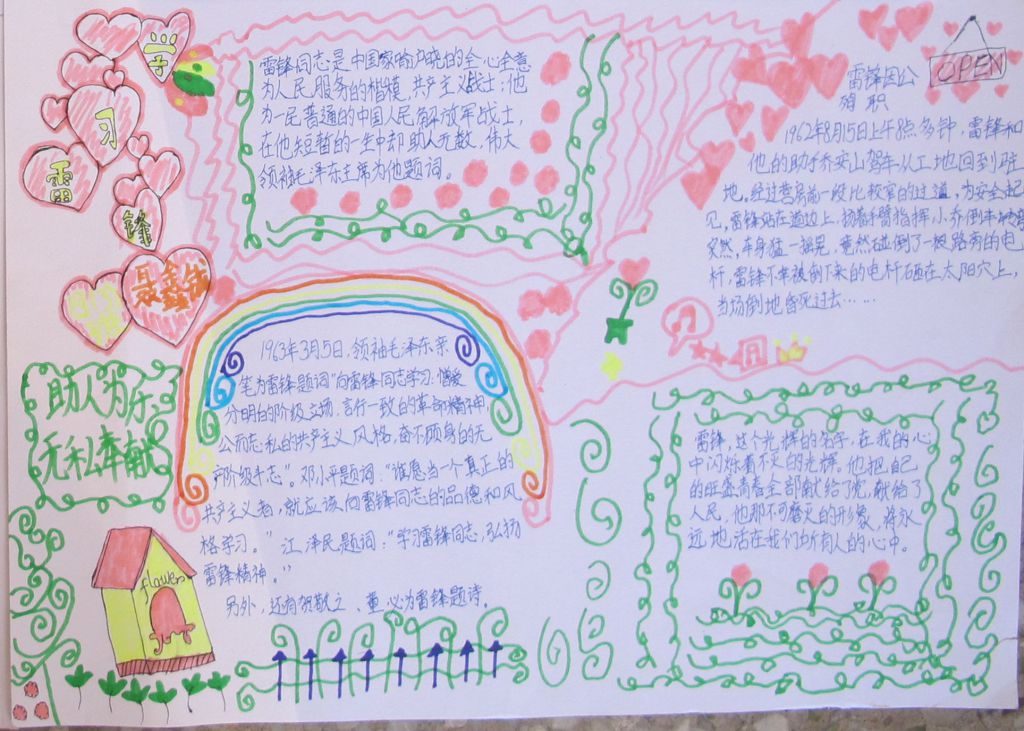 学
习
雷
锋
助人为乐
无私奉献
flower
雷锋同志是中国家喻户晓的全心全意
为人民服务的楷模,共产主义战士;他
为一民普通的中国人民解放军战士,
在他短暂的一生中却助人无数,伟大
领袖毛泽东主席为他题词。
1963年3月5日,领袖毛泽东亲
笔为雷锋题词“向雷锋同志学习,憎爱
分明的阶级立场,言行一致的革命精神,
公而忘私的共产主义风格,奋不顾身的无
产阶级斗志。”邓小平题词:“谁愿当一个真正的
共产主义者,就应该向雷锋同志的品德和风
格学习。”江泽民题词:“学习雷锋同志,弘扬
雷锋精神。”
另外,还有贺敬之、董必为雷锋题诗。
OPEN
雷锋因公
殉职
1962年8月15日上午8点多钟,雷锋和
他的助手乔安山驾车从工地回到驻
地,经过营房前一段比较窄的过道,为安全起
见,雷锋站在道边上,扬着手臂指挥小乔倒车
突然,车身猛一摇晃,竟然碰倒了一根路旁的电
杆,雷锋不幸被倒下来的电杆砸在太阳穴上,
当场倒地昏死过去……
雷锋,这个光辉的名字,在我的心
中闪烁着不灭的光辉。他把自己
的旺盛青春全部献给了党,献给了
人民,他那不可磨灭的形象,将永
远地活在我们所有人的心中。